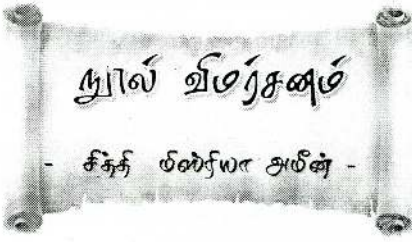 நூல் விமர்சனம்
- சித்தி மிஸ்ரியா அமீன் -